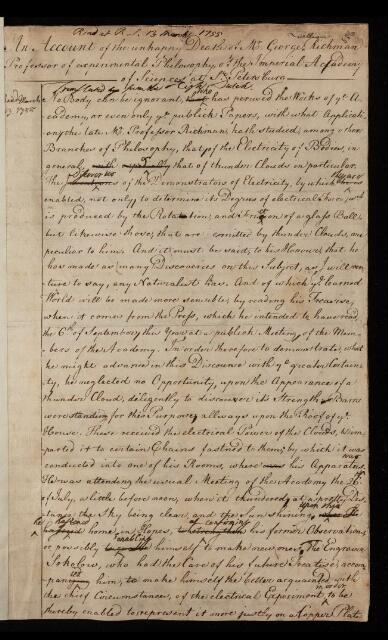 Read at R.S. 13 March 1755
An Account of the unhappy Death of Mr. George William Richman
Professor of experimental Philosophy, of the Imperial Academy
of Sciences at St. Petersburg
translated from the
Read March 13 1755
No Body can be ignorant, who has perused the Works of ye. A-
cademy, or even only ye. publick Papers, with what Applicati-
on the late Mr. Professor Richman, hath studied, among other
Branches of Philosophy, that of the Electricity of Bodies, in
general, and that of thunder Clouds in particular.
The of the Demonstrators of Electricity, by which
enabled, not only to determine its Degrees of electrical Force, wch.
is produced by the Rotation and Friction of a glass Ball
but likewise those, that are emitted by thunder Clouds, are
peculiar to him. And it must be said, to his Honour, that he
has made as many Discoveries on this Subject, as I will ven-
ture to say, any Naturalist has. And of which ye. learned
World will be made more sensible, by reading his Treatise,
when it comes from the Press, which he intended to have read,
the 6th. of September, this Year at a publick Meeting of the Mem-
bers of the Academy. In order therefore to demonstrate, what
he might advance in this Discourse with ye. greater Certain-
ty, he neglected no Opportunity, upon the Appearance of a
thunder Cloud, diligently to discover its Strength. Barrs
were standing for these Purposes, allways upon the Roof of ye.
House. These received the electrical Power of the Clouds, & im-
parted it to certain Chains fastned to them; by which it was
conducted into one of his Rooms, where was his Apparatus.
He was attending the usual Meeting of the Academy the
of July, a little before noon, when it thundered at a pretty Dis-
tance, the Sky being clear, and the Sun shining, upon this
he hastened home, in Hopes, of confirming his former Observations,
or possibly enabling himself to make new ones. The Engraver
Sokolow, who had the Care of his future Treatise, accom-
panied him, to make himself the better acquainted with
the chief Circumstances, of the electrical Experiment, in order to be
thereby enabled to represent it more justly on a Copper Plate